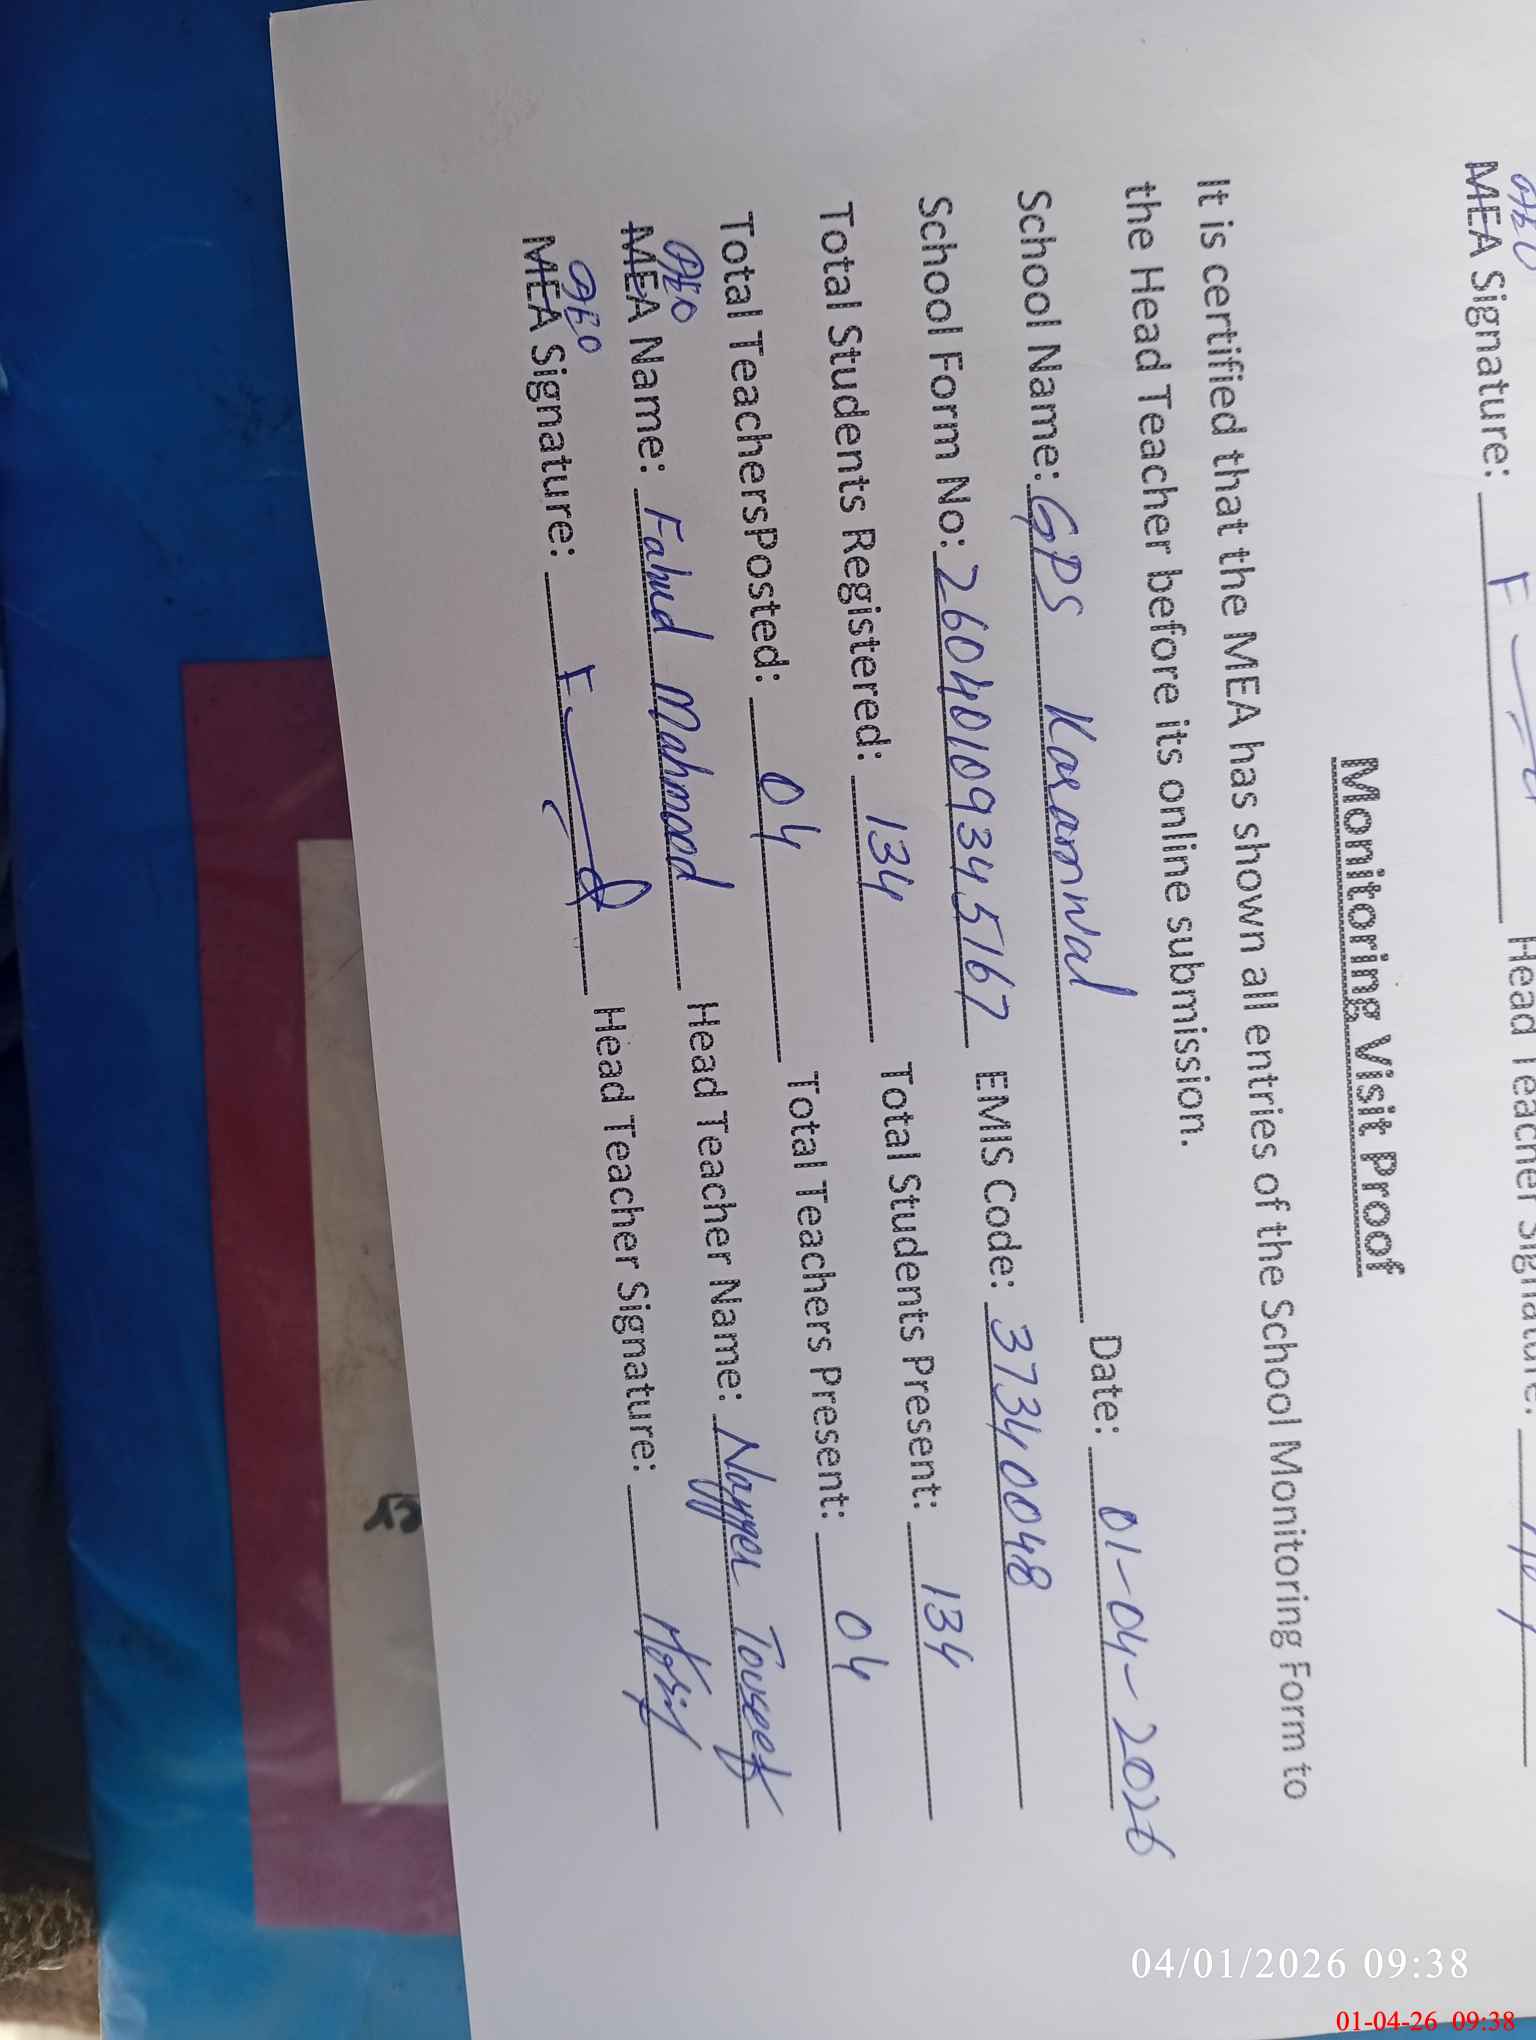 AEO
MEA Signature: Head Teacher Signature:
Monitoring Visit Proof
It is certified that the MEA has shown all entries of the School Monitoring Form to
the Head Teacher before its online submission.
School Name: GPS Karamwal Date: 01-04-2026
School Form No: 26040109345167 EMIS Code: 37340048
Total Students Registered: 134 Total Students Present: 134
Total TeachersPosted: 04 Total Teachers Present: 04
AEO
MEA Name: Fahad Mahmood Head Teacher Name: Nayyer Touseef
AEO
MEA Signature: Head Teacher Signature:
04/01/2026 09:38
01-04-26 09:38